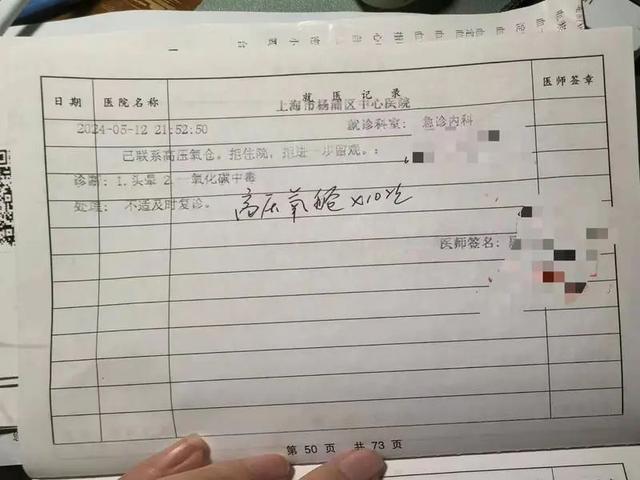 就医记录
日期 医院名称 医师签章
上海市杨浦区中心医院
2024-05-12 21:52:50 就诊科室: 急诊内科
已联系高压氧仓。拒住院，拒进一步留观。:
诊断: 1.头晕 2.一氧化碳中毒
处理: 不适及时复诊。 高压氧舱 x10次
医师签名:
第 50 页 共 73 页